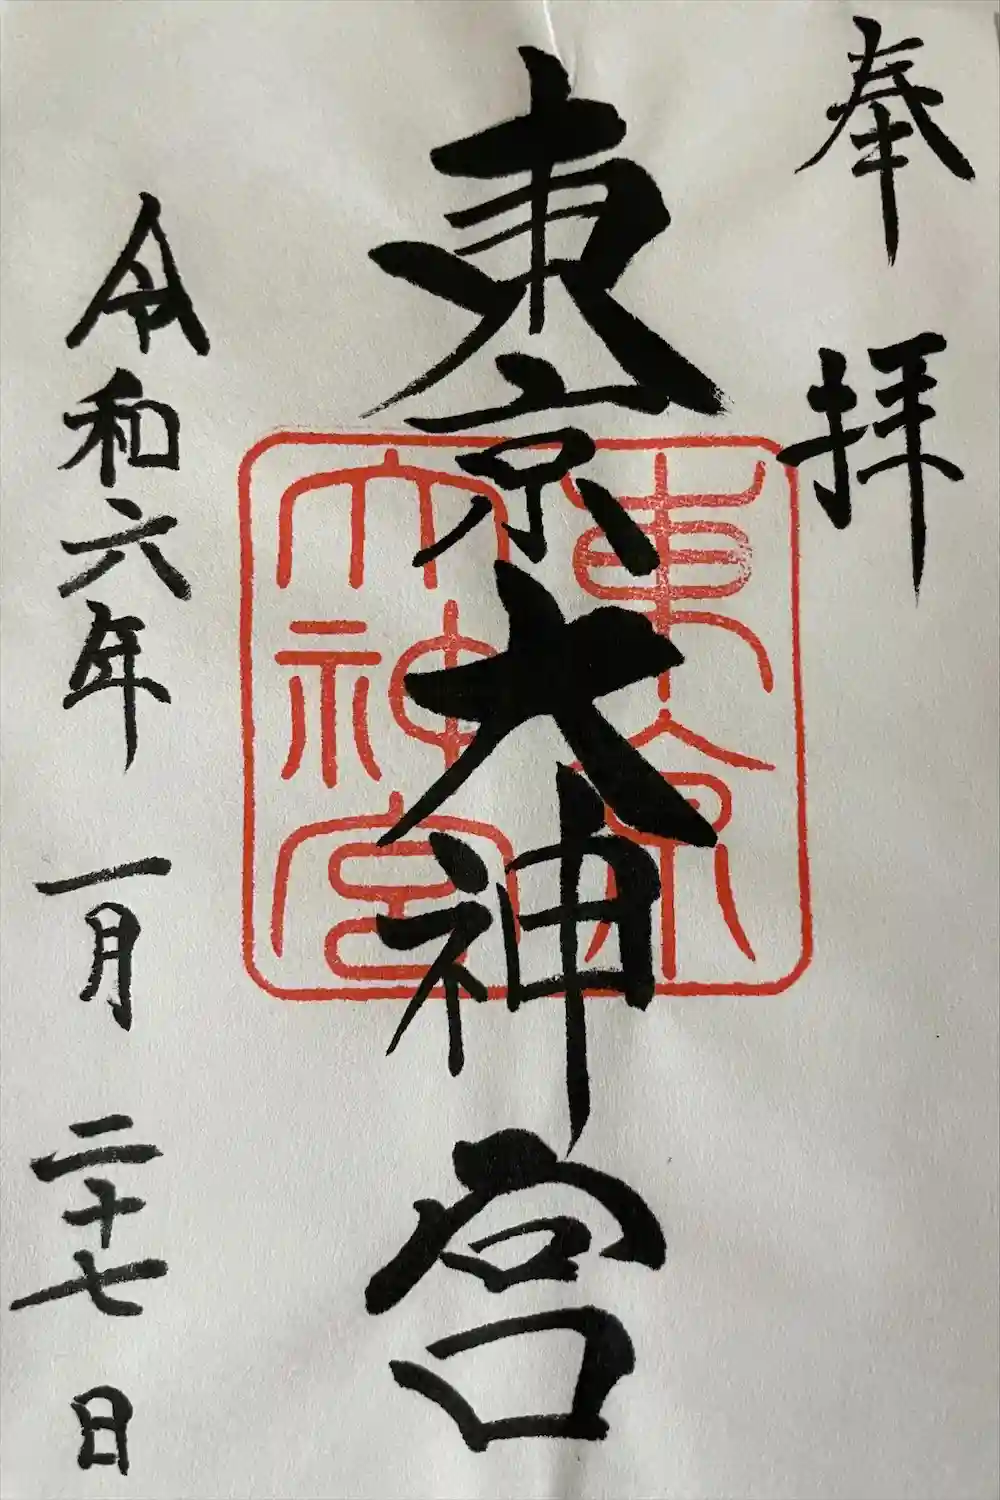 奉拝
東京大神宮
東京
大神宮
令和六年一月二十七日